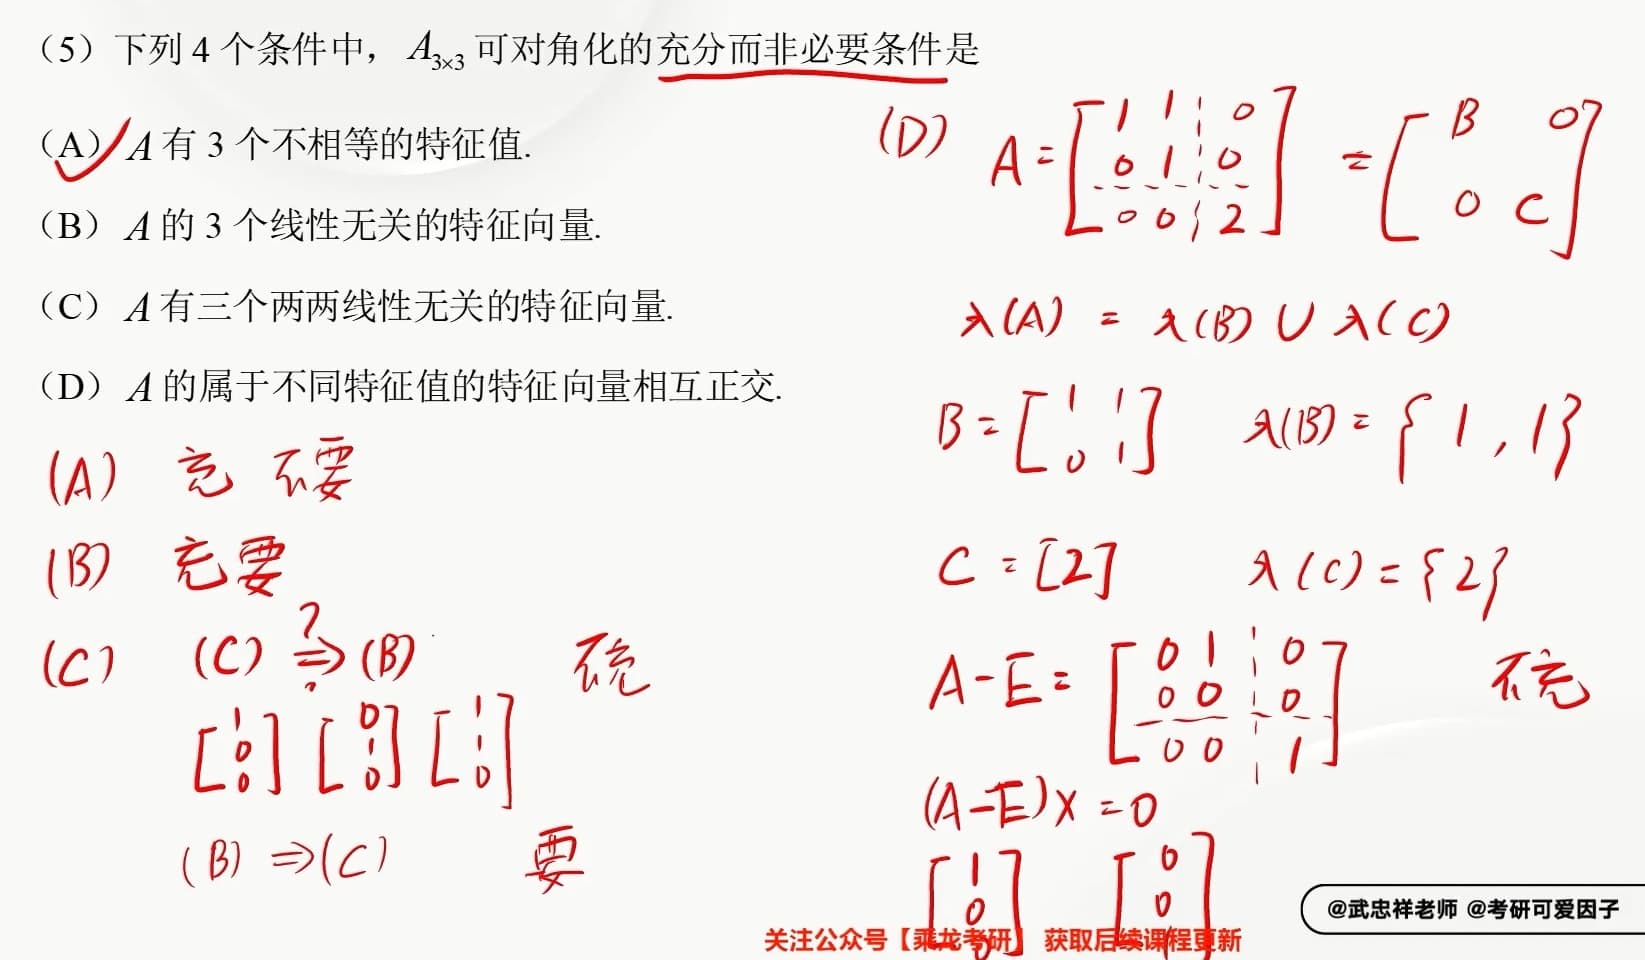 （5）下列 4 个条件中， A₃ₓ₃ 可对角化的充分而非必要条件是
（A） A 有 3 个不相等的特征值.
（B） A 的 3 个线性无关的特征向量.
（C） A 有三个两两线性无关的特征向量.
（D） A 的属于不同特征值的特征向量相互正交.
(A) 充 不要
(B) 充要
(C) (C) ?⇒ (B) 不充
[1 0 0] [0 1 0] [1 1 0]
(B) ⇒ (C) 要
(D) A = [1 1 0
0 1 0
0 0 2] = [B 0
0 C]
λ(A) = λ(B) ∪ λ(C)
B = [1 1
0 1] λ(B) = {1, 1}
C = [2] λ(C) = {2}
A-E = [0 1 0
0 0 0
0 0 1] 不充
(A-E)x = 0
[1 0 0] [0 0 1]
@武忠祥老师 @考研可爱因子
关注公众号【乘龙考研】 获取后续课程更新